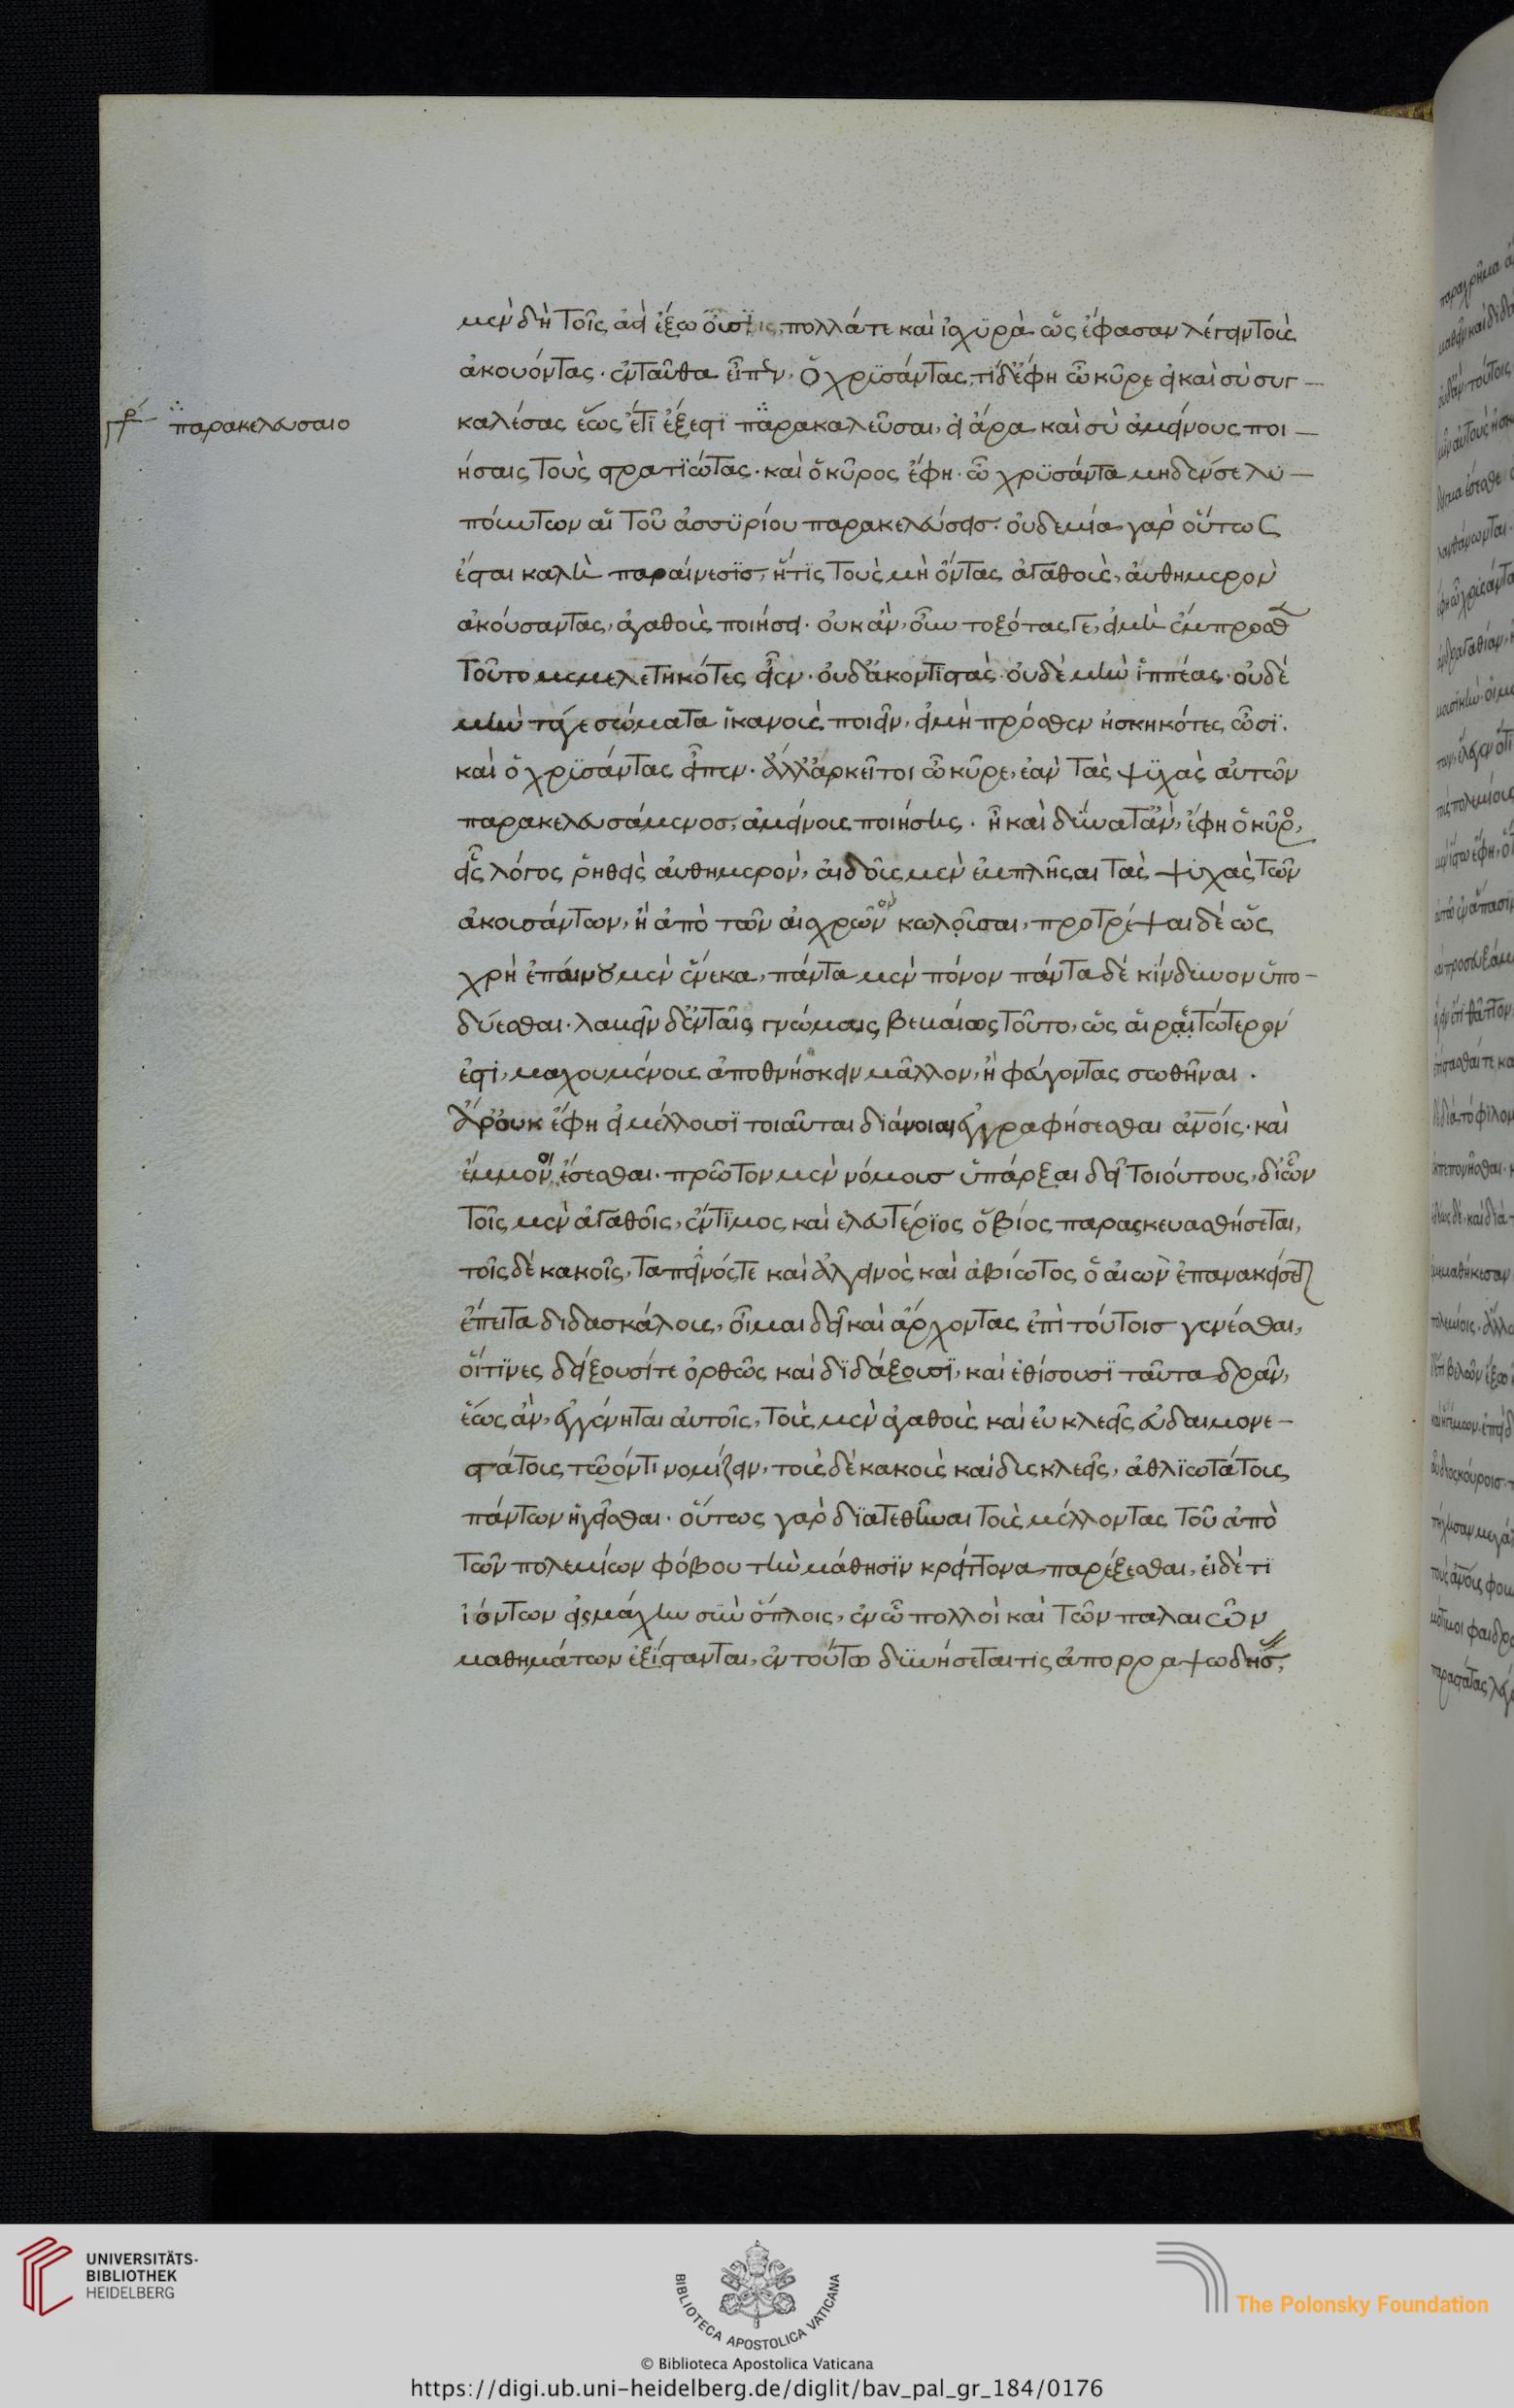 μὲν δὴ τοῖς ἀεὶ ἔξω οὖσι, πολλά τε καὶ ἰσχυρὰ ὡς ἔφασαν λέγοντος
ἀκούοντας. ἐνταῦθα εἶπεν, ὁ χρϋσάντας, τί δ' ἔφη ὦ κῦρε εἰ καὶ σὺ συγ-
καλέσας ἕως ἔτι ἔξεστϊ παρακαλεῦσαι, εἰ ἄρα καὶ σὺ ἀμείνους ποι-
γρ παρακελεύσαιο
ήσαις τοὺς στρατϊώτας. καὶ ὁ κῦρος ἔφη. ὦ χρϋσάντα μηδέν σε λϋ-
πούντων αἱ τοῦ ἀσσϋρίου παρακελεύσεισ. οὐδεμία γὰρ οὕτως
ἔσται καλὴ παραίνεσϊσ, ἥτϊς τοὺς μὴ ὄντας ἀγαθοὺς, αὐθημερὸν
ἀκούσαντας, ἀγαθοὺς ποιήσει. οὐκ ἂν, οὖν τοξότας γε, εἰ μὴ ἔμπροσθ
τοῦτο μεμελετηκότες εἶεν. οὐδ' ἀκοντϊστὰς. οὐδὲ μὴν ἱππέας. οὐδὲ
μὴν τά γε σώματα ἱκανοὺς ποιεῖν, εἰ μὴ πρόσθεν ἠσκηκότες ὦσϊ.
καὶ ὁ χρϋσάντας εἶπεν. ἀλλ' ἀρκεῖ τοι ὦ κῦρε, ἐὰν τὰς ψϋχὰς αὐτῶν
παρακελευσάμενοσ, ἀμείνους ποιήσῃς. ἦ καὶ δύναιτ' ἂν, ἔφη ὁ κῦρος,
εἷς λόγος ῥηθεὶς αὐθημερὸν, αἰδοῦς μὲν ἐμπλῆσαι τὰς ψυχὰς τῶν
ἀκουσάντων, ἢ ἀπὸ τῶν αἰσχρῶν κωλῦσαι, προτρέψαι δὲ ὡς
χρὴ ἐπαίνου μὲν ἕνεκα, πάντα μὲν πόνον πάντα δὲ κίνδυνον ὑπο-
δύεσθαι. λαμεῖν δ' ἐν ταῖς γνώμαις βεμαίως τοῦτο, ὡς αἱρετώτερόν
ἐστι, μαχομένους ἀποθνήσκειν μᾶλλον, ἢ φεύγοντας σωθῆναι.
ἆρ' οὐκ ἔφη εἰ μέλλουσϊ τοιαῦται διάνοιαι ἐγγραφήσεσθαι ἀνοις. καὶ
ἔμμονοι ἔσεσθαι. πρῶτον μὲν νόμουσ ὑπάρξαι δεῖ τοιούτους, δι' ὧν
τοῖς μὲν ἀγαθοῖς, ἔντϊμος καὶ ἐλευτέρϊος ὁ βίος παρασκευασθήσεται,
τοῖς δὲ κακοῖς, ταπεινός τε καὶ ἀλγεινὸς καὶ ἀβίωτος ὁ αἰὼν ἐπανακείσετ
ἔπειτα διδασκάλους, οἶμαι δεῖ καὶ ἄρχοντας ἐπὶ τούτοισ γενέσθαι,
οἵτϊνες δείξουσί τε ὀρθῶς καὶ δϊδάξουσϊ, καὶ ἐθίσουσϊ ταῦτα δρᾶν,
ἕως ἂν, ἐγγένηται αὐτοῖς, τοὺς μὲν ἀγαθοὺς καὶ εὐκλεεῖς εὐδαιμονε-
στάτους τῶ ὄντι νομίζειν, τοὺς δὲ κακοὺς καὶ δυσκλεεῖς, ἀθλϊωτάτους
πάντων ἡγεῖσθαι. οὕτως γὰρ δϊατεθῆναι τοὺς μέλλοντας τοῦ ἀπὸ
τῶν πολεμίων φόβου τὴν μάθησϊν κρείττονα παρέξεσθαι, εἰ δέ τϊ
ἰόντων εἰς μάχην σὺν ὅπλοις, ἐν ὧ πολλοὶ καὶ τῶν παλαιῶν
μαθημάτων ἐξίστανται, ἐν τούτω δϋνήσεταί τις ἀπορραψωδήσ,
UNIVERSITÄTS-
BIBLIOTHEK
HEIDELBERG
BIBLIOTECA APOSTOLICA VATICANA
The Polonsky Foundation
© Biblioteca Apostolica Vaticana
https://digi.ub.uni-heidelberg.de/diglit/bav_pal_gr_184/0176